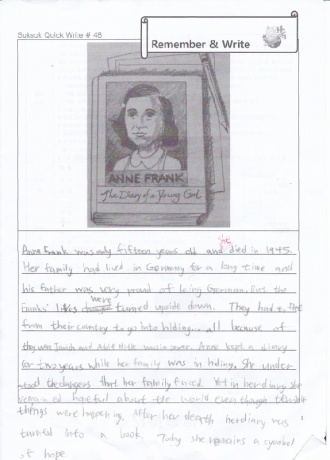 Suksuk Quick Write # 48
Remember & Write
ANNE FRANK
The Diary of a Young Girl
she
Anne Frank was only fifteen years old and died in 1945.
Her family had lived in Germany for a long time and
his father was very proud of being German. But the
were
Franks' lives turned upside down. They had to flee
from their country to go into hiding... all because of
they were Jewish and Adolf Hitler was in power. Anne kept a diary
for two years while her family was in hiding. She under
stood the dangers that her family faced. Yet in her diary she
remained hopeful about the world even though terrible
things were happening. After her death her diary was
turned into a book. Today she remains a symbol
of hope